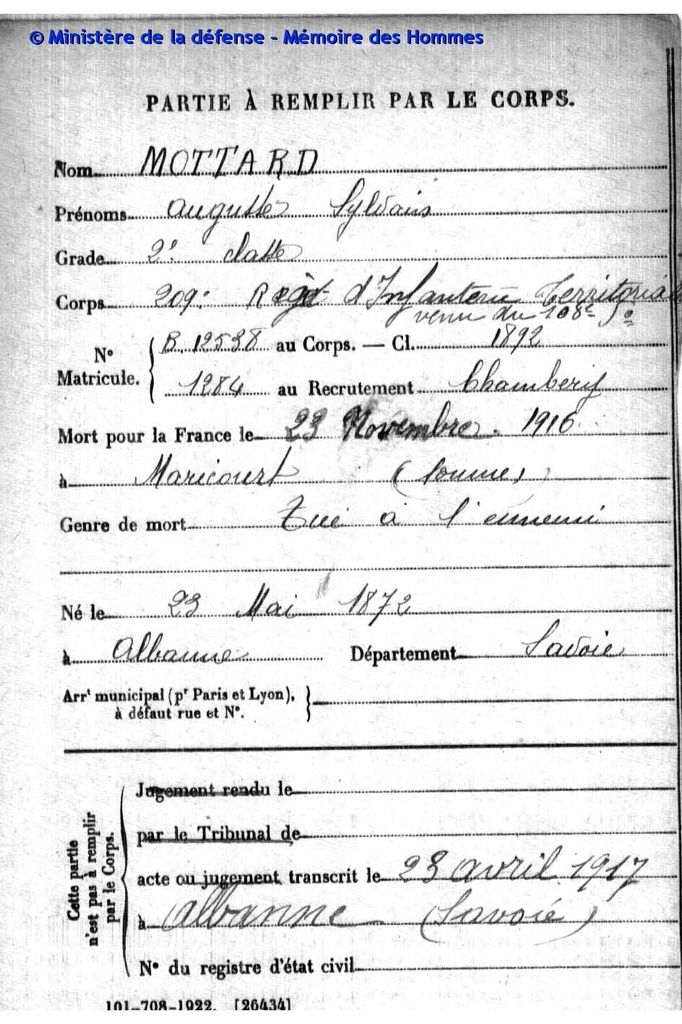 © Ministère de la défense - Mémoire des Hommes
PARTIE À REMPLIR PAR LE CORPS.
Nom MOTTARD
Prénoms Auguste Sylvain
Grade 2e classe
Corps 209e Regt d'Infanterie Territoriale
venu du 108e
N° Matricule. B. 12538 au Corps. — Cl. 1892
1284 au Recrutement Chambéry
Mort pour la France le 23 Novembre 1916
à Maricourt (Somme)
Genre de mort Tué à l'ennemi
Né le 23 Mai 1872
à Albanne Département Savoie
Arrt municipal (pr Paris et Lyon),
à défaut rue et N°.
Cette partie
n'est pas à remplir
par le Corps.
Jugement rendu le
par le Tribunal de
acte ou jugement transcrit le 23 avril 1917
à Albanne (Savoie)
N° du registre d'état civil
101-708-1922. [26434]